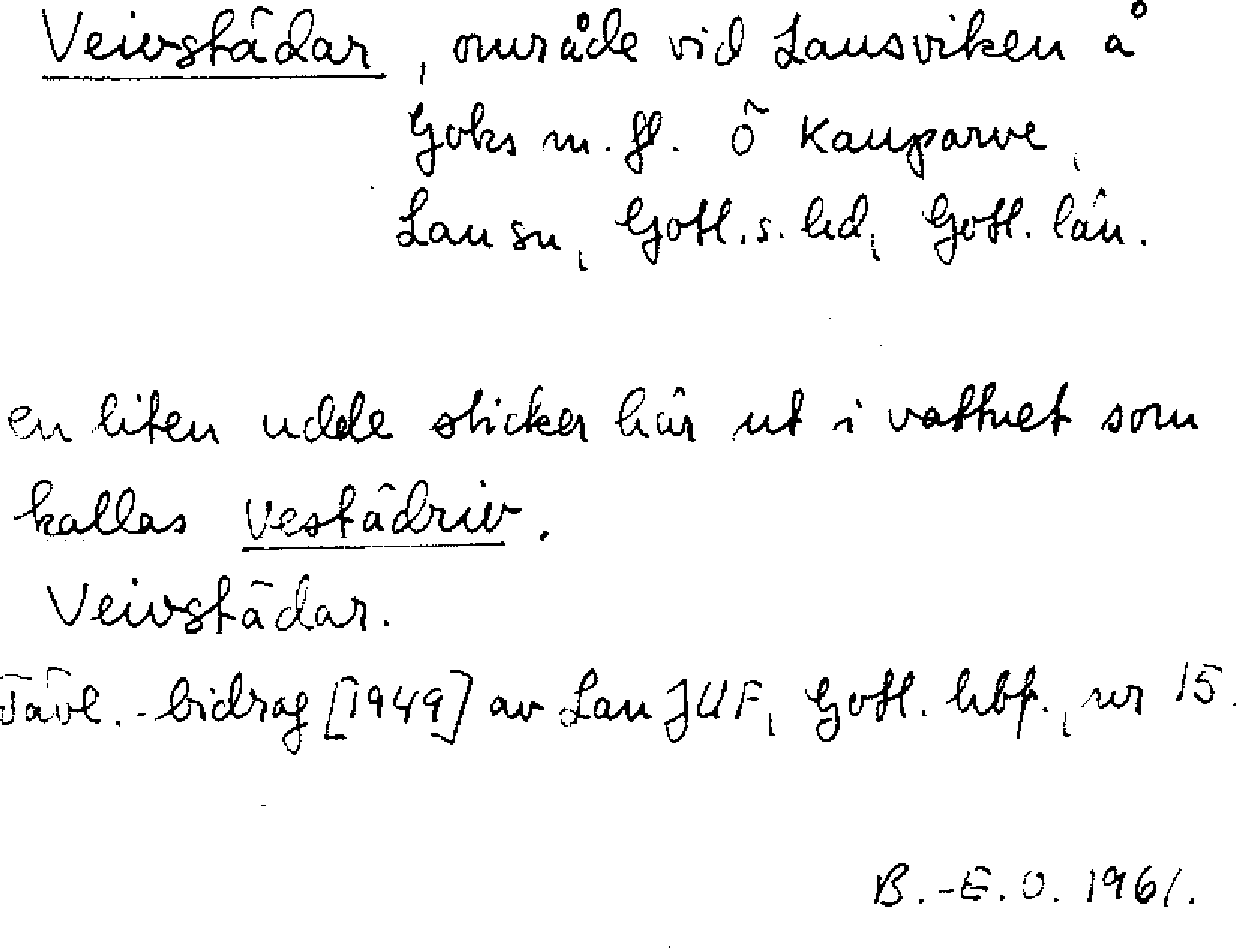 Veivstädar, område vid Lausviken å
Goks m. fl. Ö Kauparve,
Lau sn, Gotl. s. hd, Gotl. län.
en liten udde sticker här ut i vattnet som
kallas vestädriv.
Veivstädar.
Tävl.-bidrag [1949] av Lau JUF, Gotl. hbf., nr 15.
B.-E. O. 1961.